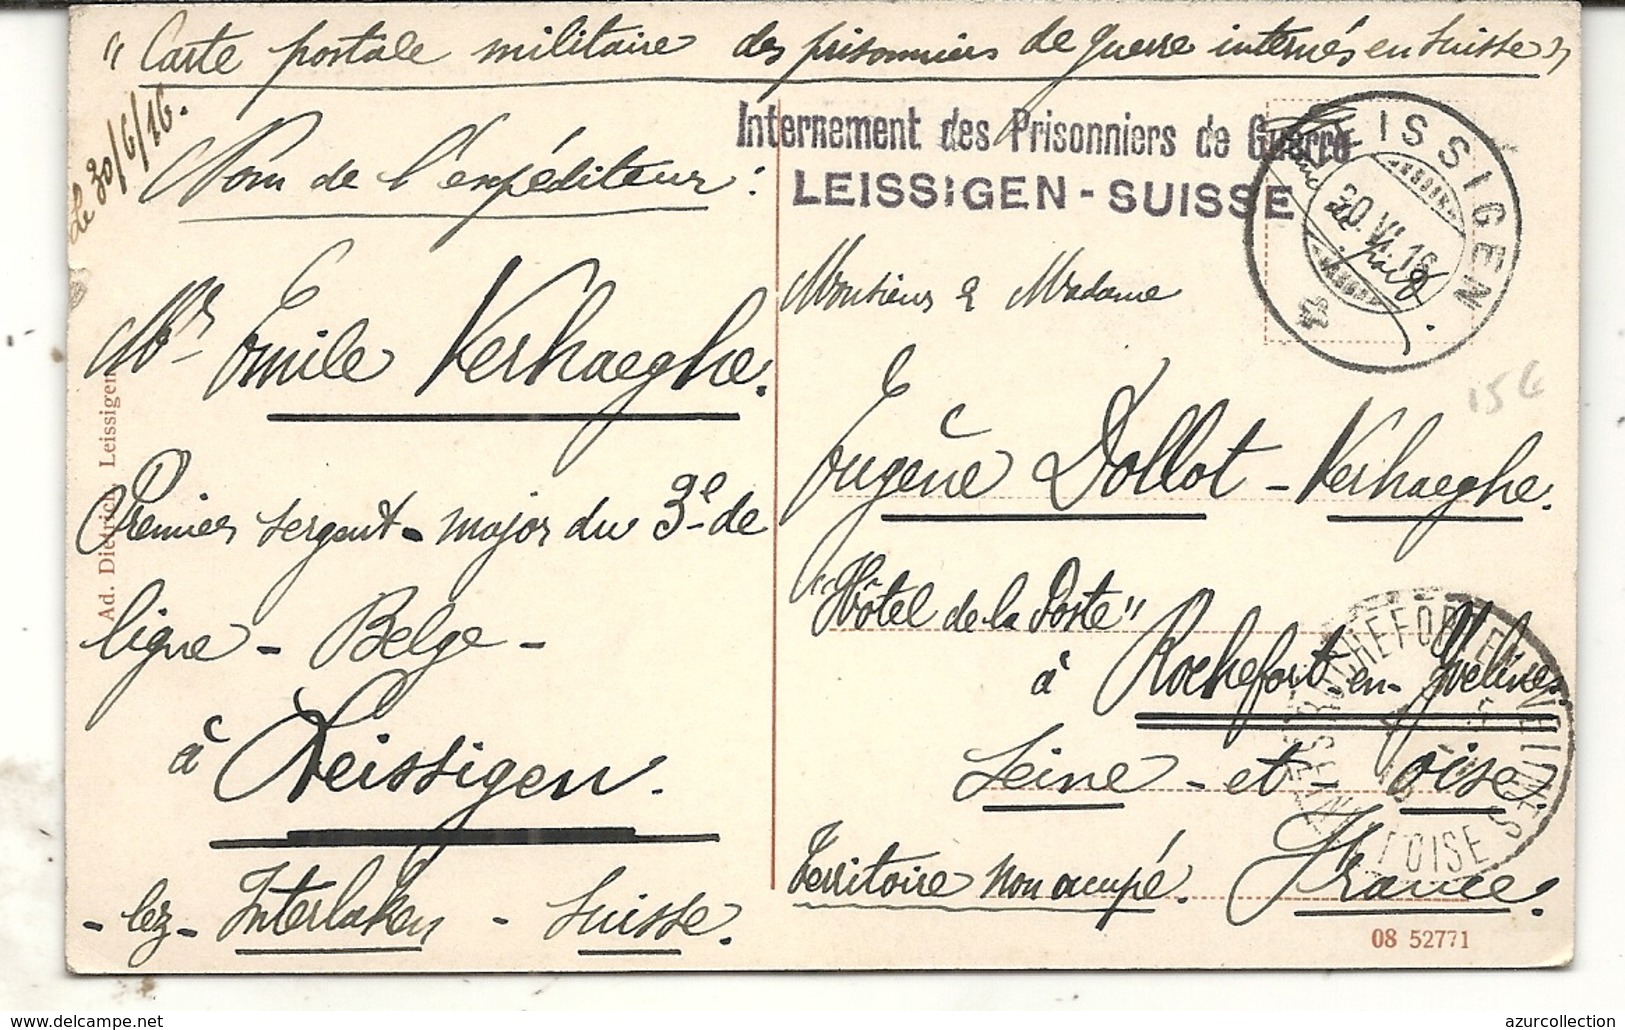 "Carte postale militaire des prisonniers de guerre internés en Suisse"
Le 30/6/16.
Internement des Prisonniers de Guerre
LEISSIGEN - SUISSE
LEISSIGEN
30.VI.16
Nom de l'expéditeur :
Mr Emile Verhaeghe.
Premier sergent-major du 3e de
ligne - Belge -
à Leissigen.
- lez - Interlaken - Suisse.
Ad. Dietrich, Leissigen
Monsieur & Madame
Eugène Dollot - Verhaeghe.
"Hôtel de la Poste"
à Rochefort-en-Yvelines
Seine - et - Oise.
Territoire non occupé. France.
15 €
ROCHEFORT EN YVELINES
SEINE ET OISE
08 52771
www.delcampe.net
azurcollection